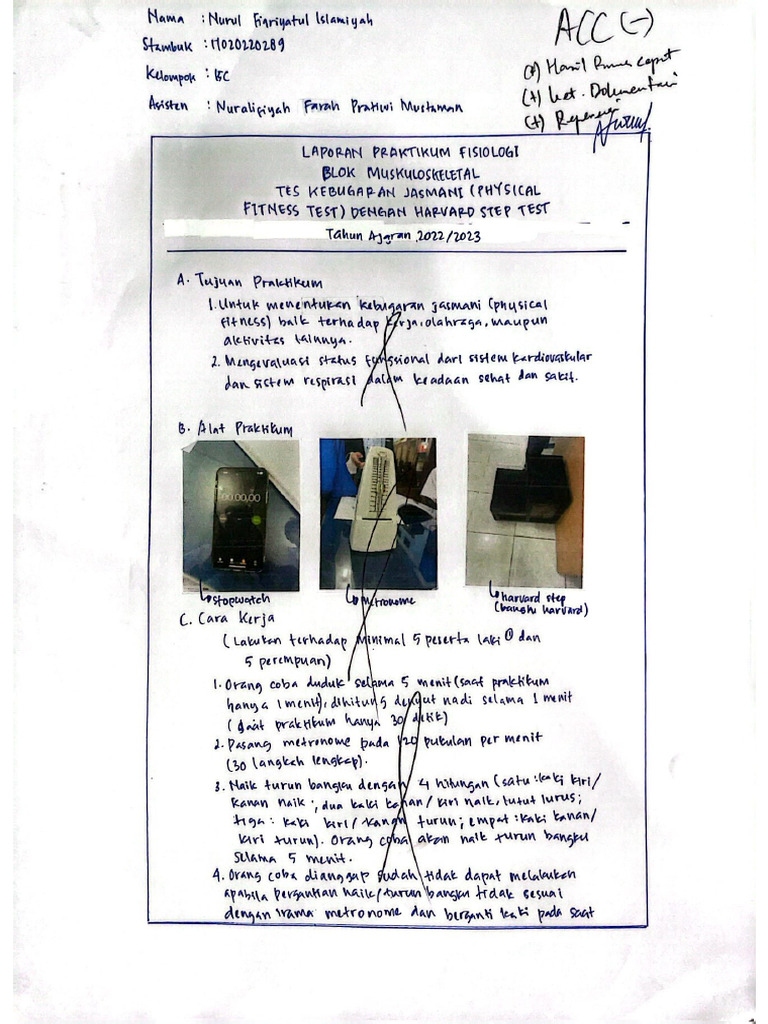 Nama : Nurul Fiqriyatul Islamiyah
Stambuk : 11020220289
Kelompok : 15C
Asisten : Nuralifiyah Farah Pratiwi Mustaman
ACC (-)
(+) Hasil Rumus cepat
(+) ket. Dokumentasi
(+) Referensi
LAPORAN PRAKTIKUM FISIOLOGI
BLOK MUSKULOSKELETAL
TES KEBUGARAN JASMANI (PHYSICAL
FITNESS TEST) DENGAN HARVARD STEP TEST
Tahun Ajaran 2022/2023
A. Tujuan Praktikum
1. Untuk menentukan kebugaran jasmani (physical
fitness) baik terhadap kerja, olahraga, maupun
aktivitas lainnya.
2. Mengevaluasi status fungsional dari sistem kardiovaskular
dan sistem respirasi dalam keadaan sehat dan sakit.
B. Alat Praktikum
00:00,00
stopwatch
metronome
harvard step
(bangku harvard)
C. Cara Kerja
(Lakukan terhadap minimal 5 peserta laki² dan
5 perempuan)
1. Orang coba duduk selama 5 menit (saat praktikum
hanya 1 menit), dihitung denyut nadi selama 1 menit
(saat praktikum hanya 30 detik)
2. Pasang metronome pada 120 pukulan per menit
(30 langkah lengkap).
3. Naik turun bangku dengan 4 hitungan (satu : kaki kiri/
kanan naik ; dua kaki kanan/kiri naik, lutut lurus;
tiga : kaki kiri/kanan turun; empat : kaki kanan/
kiri turun). Orang coba akan naik turun bangku
selama 5 menit.
4. Orang coba dianggap sudah tidak dapat melakukan
apabila pergantian naik/turun bangku tidak sesuai
dengan irama metronome dan berganti kaki pada saat